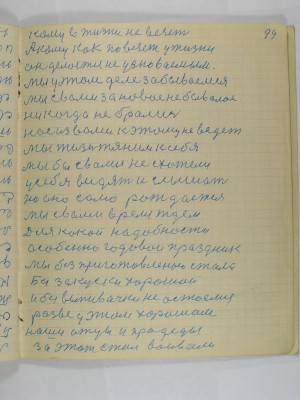 99
кому в жизни не везет
А кому как повезет у жизни
он делости не узноваемым.
мы утом деле забываемся
мы свами за новое небывалое
никогда не бралис
нас извами к этому не ведет
мы тизы тяним ксебя
мы бы свами не схотели
усебя видят и слышат
но оно само рождается
мы свами время ждем
Для какой надобности
особенно годовой праздник
мы без приготовленого стола
Бз закуски хорошой
и без выпивачки не остаемся
разве у этом хорошом
наши отцы и прадеды
за этот стал воевали